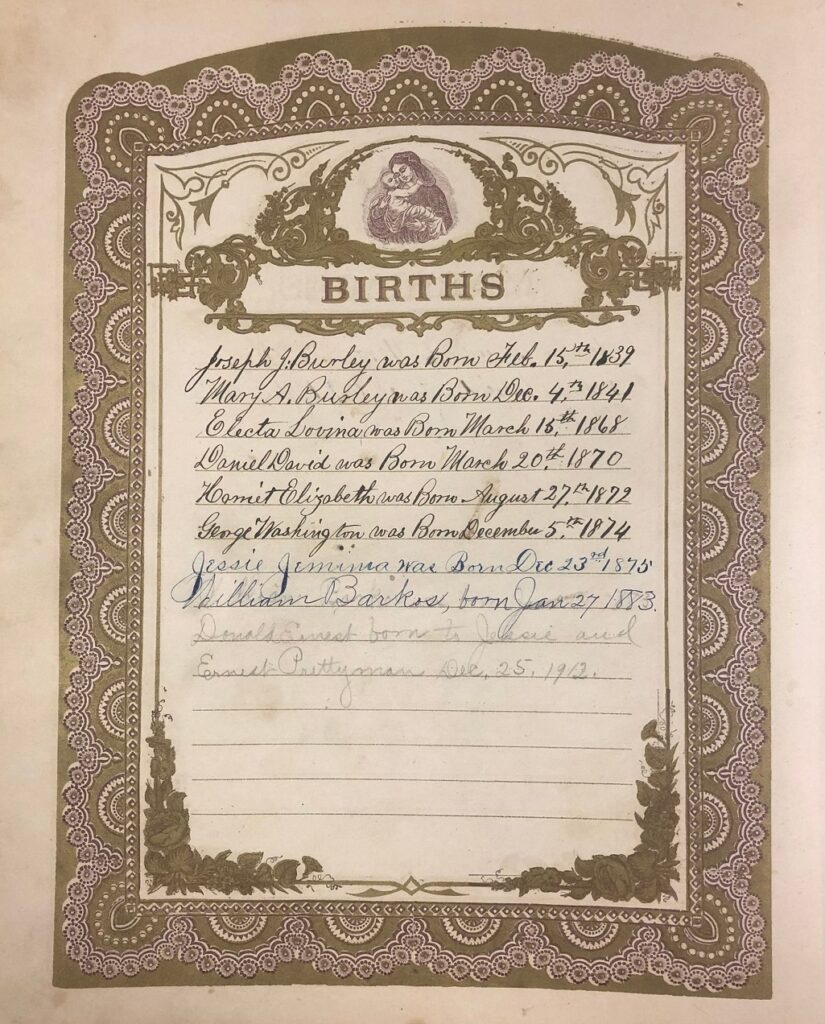 BIRTHS
Joseph J. Burley was Born Feb. 15,th 1839
Mary A. Burley was Born Dec. 4,th 1841
Electa Lovina was Born March 15,th 1868
Daniel David was Born March 20,th 1870
Harriet Elizabeth was Born August 27,th 1872
George Washington was Born December 5,th 1874
Jessie Jemima was Born Dec 23rd 1875
William Barkos, born Jan 27 1883.
Donald Ernest born to Jessie and
Ernest Prettyman Dec. 25, 1912.